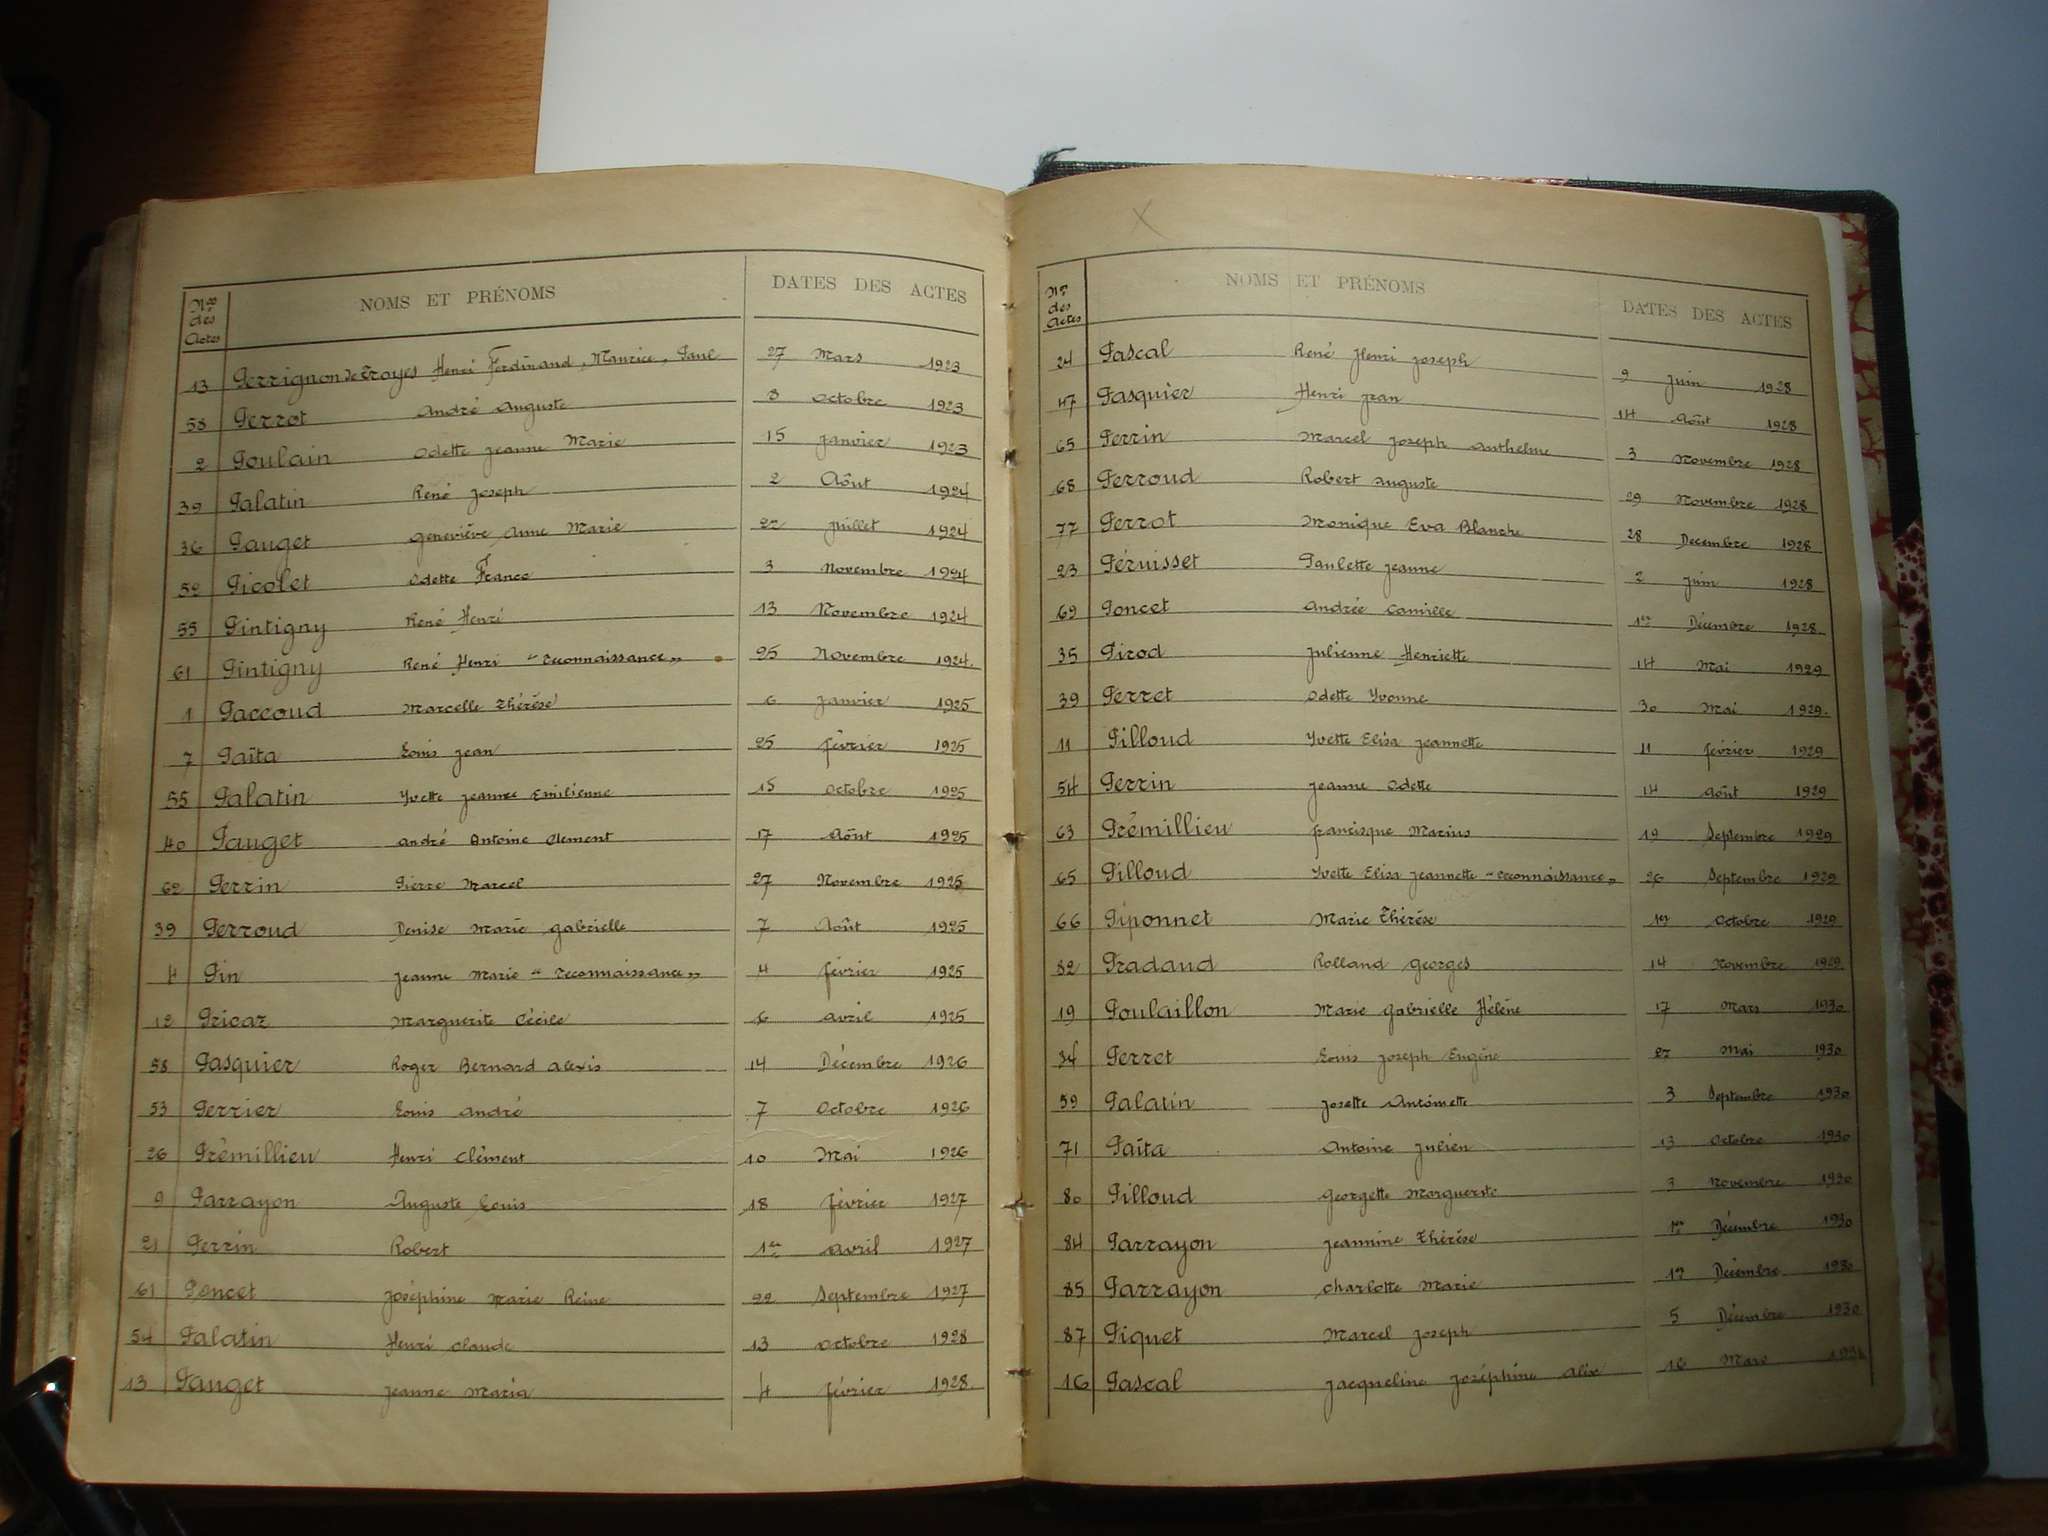 Nos des Actes NOMS ET PRÉNOMS DATES DES ACTES
13 Perrignon de Troyes Henri Ferdinand, Maurice, Paul 27 Mars 1923
58 Perrot André Auguste 8 Octobre 1923
2 Poulain Odette Jeanne Marie 15 Janvier 1923
39 Palatin René Joseph 2 Aôut 1924
36 Pauget Geneviève Anne Marie 22 Juillet 1924
52 Picolet Odette France 3 Novembre 1924
55 Pintigny René Henri 13 Novembre 1924
61 Pintigny René Henri "reconnaissance" 25 Novembre 1924.
1 Paccoud Marcelle Thérèse 6 Janvier 1925
7 Païta Louis Jean 25 Février 1925
55 Palatin Yvette Jeanne Emilienne 15 Octobre 1925
40 Pauget André Antoine Clement 17 Aôut 1925
62 Perrin Pierre Marcel 27 Novembre 1925
39 Perroud Denise Marie Gabrielle 7 Août 1925
4 Pin Jeanne Marie "reconnaissance" 4 Février 1925
12 Pricaz Marguerite Cécile 6 Avril 1925
58 Pasquier Roger Bernard Alexis 14 Décembre 1926
53 Perrier Louis André 7 Octobre 1926
26 Prémillieu Henri Clément 10 Mai 1926
9 Parrayon Auguste Louis 18 Février 1927
21 Perrin Robert 1er Avril 1927
61 Poncet Joséphine Marie Reine 22 Septembre 1927
54 Palatin Henri Claude 13 Octobre 1928
13 Pauget Jeanne Maria 4 Février 1928.
Nos des Actes NOMS ET PRÉNOMS DATES DES ACTES
24 Pascal René Henri Joseph 9 Juin 1928
47 Pasquier Henri Jean 14 Août 1928
65 Perrin Marcel Joseph Anthelme 3 Novembre 1928
68 Perroud Robert Auguste 29 Novembre 1928
77 Perrot Monique Eva Blanche 28 Decembre 1928
23 Péruisset Paulette Jeanne 2 Juin 1928
69 Poncet Andrée Camille 1er Décembre 1928.
35 Pirod Julienne Henriette 14 Mai 1929
39 Perret Odette Yvonne 30 Mai 1929.
11 Pilloud Yvette Elisa Jeannette 11 Février 1929
54 Perrin Jeanne Odette 14 Août 1929
63 Prémillieu Francisque Marius 19 Septembre 1929
65 Pilloud Yvette Elisa Jeannette "reconnaissance" 26 Septembre 1929
66 Piponnet Marie Thérèse 1er Octobre 1929
82 Pradaud Rolland Georges 14 Novembre 1929.
19 Poulaillon Marie Gabrielle Hélène 17 Mars 1930
34 Perret Louis Joseph Eugène 22 Mai 1930
59 Palatin Josette Antoinette 3 Septembre 1930
71 Païta Antoine Julien 13 Octobre 1930
80 Pilloud Georgette Marguerite 3 Novembre 1930
84 Parrayon Jeannine Thérèse 1er Décembre 1930
85 Parrayon Charlotte Marie Décembre 1930
87 Piquet Marcel Joseph 5 Décembre 1930
16 Pascal Jacqueline Joséphine Alix 16 Mars